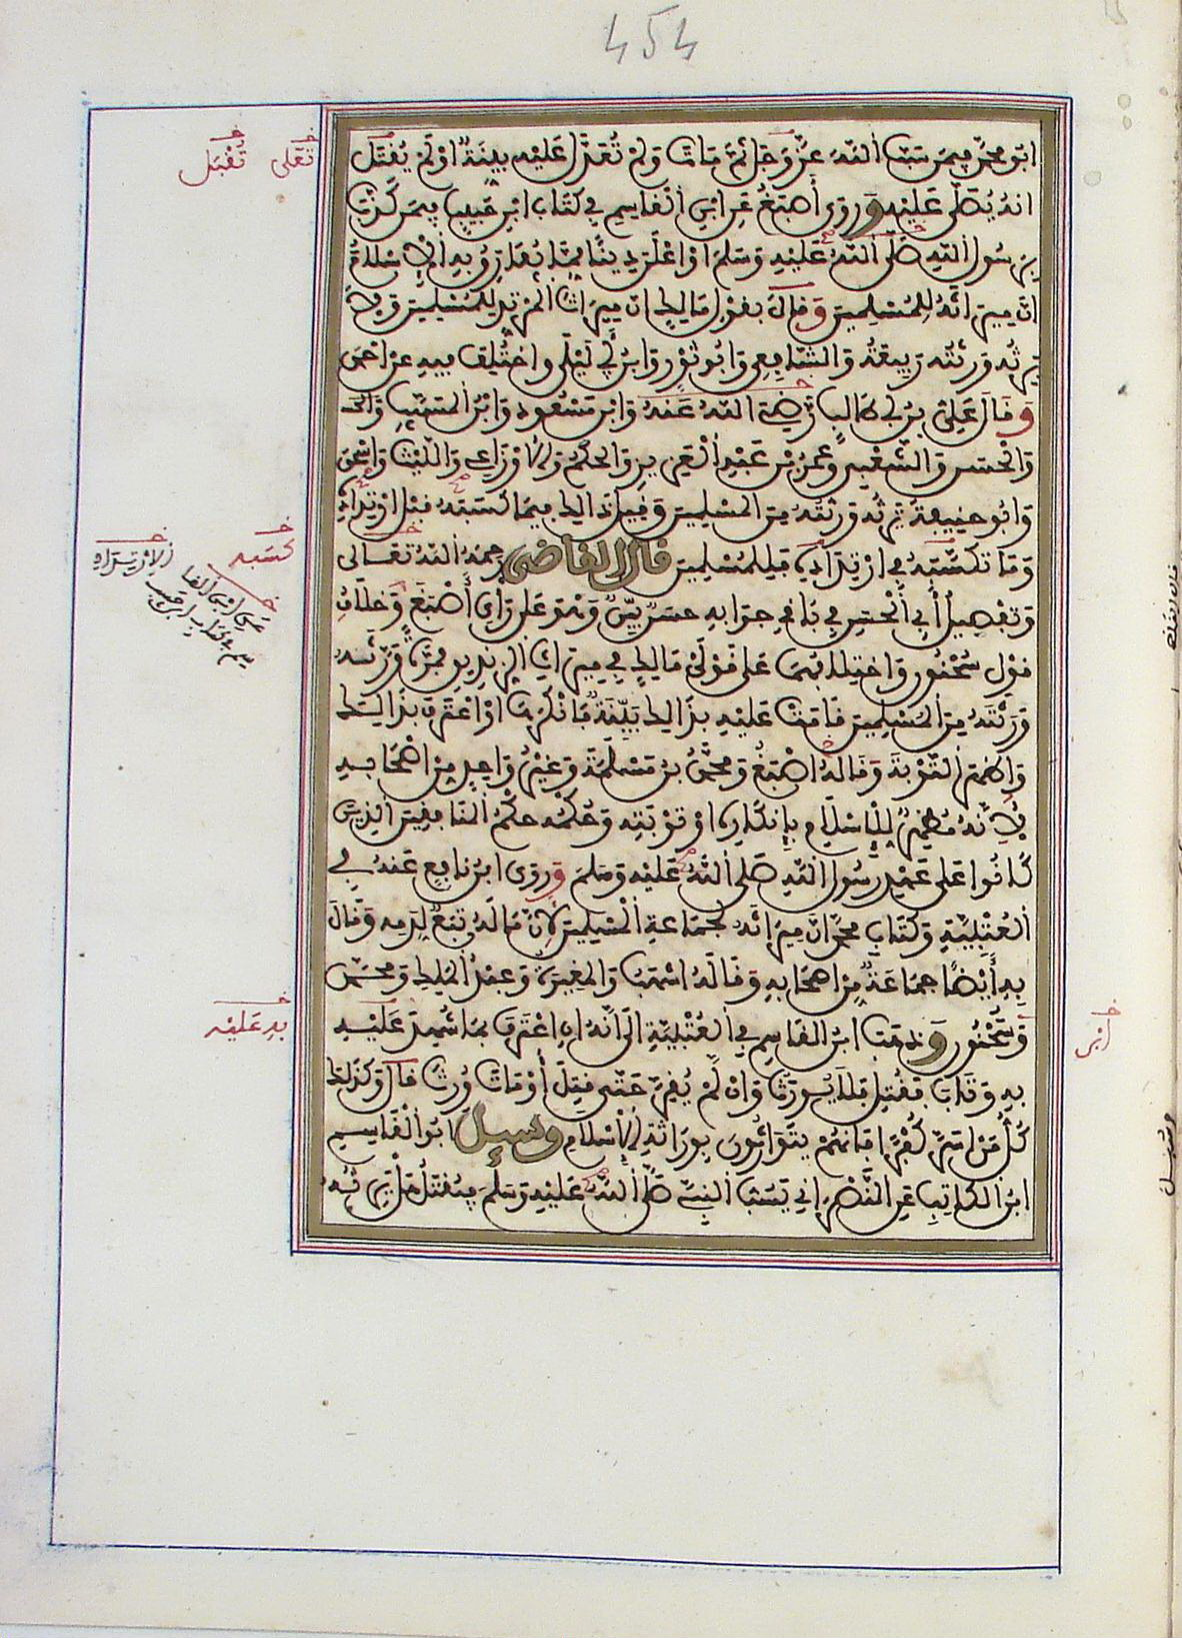 454
ابو محمد فيمن سب الله عز وجل ثم مات ولم تعدل عليه بينة او لم يقتل
انه يصلى عليه وروى أصبغ عن ابن القاسم في كتاب ابن حبيب فيمن كذب
برسول الله صلى الله عليه وسلم او اعلن دينا مما يفارق به الإسلام
ان ميراثه للمسلمين وقال بقول مالك ان ميراث المرتد للمسلمين ولا
ترثه ورثته ربيعة والشافعي وابو ثور وابن ابي ليلى واختلف فيه عن احمد
وقال علي بن ابي طالب رضي الله عنه وابن مسعود وابن المسيب
والحسن والشعبي وعمر بن عبد العزيز والحكم والاوزاعي والليث واسحق
وابو حنيفة يرثه ورثته من المسلمين وقيل ذالك فيما كسبه قبل ارتداده
وما تكسبه في ارتداده فللمسلمين قال القاضي رحمه الله تعالى
وتفصيل أبي الحسن في باقي جوابه حسن بين وهو على رأي أصبغ وخلاف
قول سحنون واختلافهما على قولي مالك في ميراث الزنديق فمرة ورثه
ورثته من المسلمين قامت عليه بذالك بينة فانكرها او اعترف بذالك
واظهر التوبة وقاله اصبغ ومحمد بن مسلمة وغير واحد من اصحابه
لانه مظهر للإسلام بإنكاره او توبته وحكمه حكم المنافقين الذين
كانوا على عهد رسول الله صلى الله عليه وسلم وروى ابن نافع عنه في
العتبية وكتاب محمد ان ميراثه لجماعة المسلمين لان ماله تبع لدمه وقال
به أيضا جماعة من اصحابه وقاله اشهب والمغيرة وعبد الملك ومحمد
وسحنون وذهب ابن القاسم في العتبية الى انه ان اعترف بما شهد عليه
به وتاب فقتل فلا يورث وان لم يقر حتى قتل أو مات ورث قال وكذلك
كل من اسر كفرا فانهم يتوارثون بوراثة الإسلام وسيل ابو القاسم
ابن الكاتب عن النصراني يسب النبي صلى الله عليه وسلم فيقتل هل يرثه
تعلى
تقبل
كسبه
الارتداد
به عليه
ابى